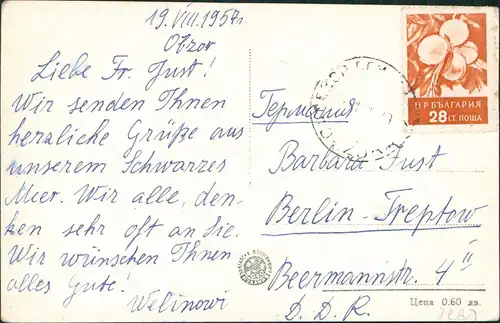 19. VIII. 1957г.
Obzor
Liebe Fr. Just!
Wir senden Ihnen
herzliche Grüße aus
unserem Schwarzes
Meer. Wir alle, den-
ken sehr oft an Sie.
Wir wünschen Ihnen
alles Gute!
Welinowi
НР БЪЛГАРИЯ
28 СТ. ПОЩА
Германия
Barbara Just
Berlin-Treptow
Beermannstr. 4 II
D. D. R.
Цена 0.60 лв.